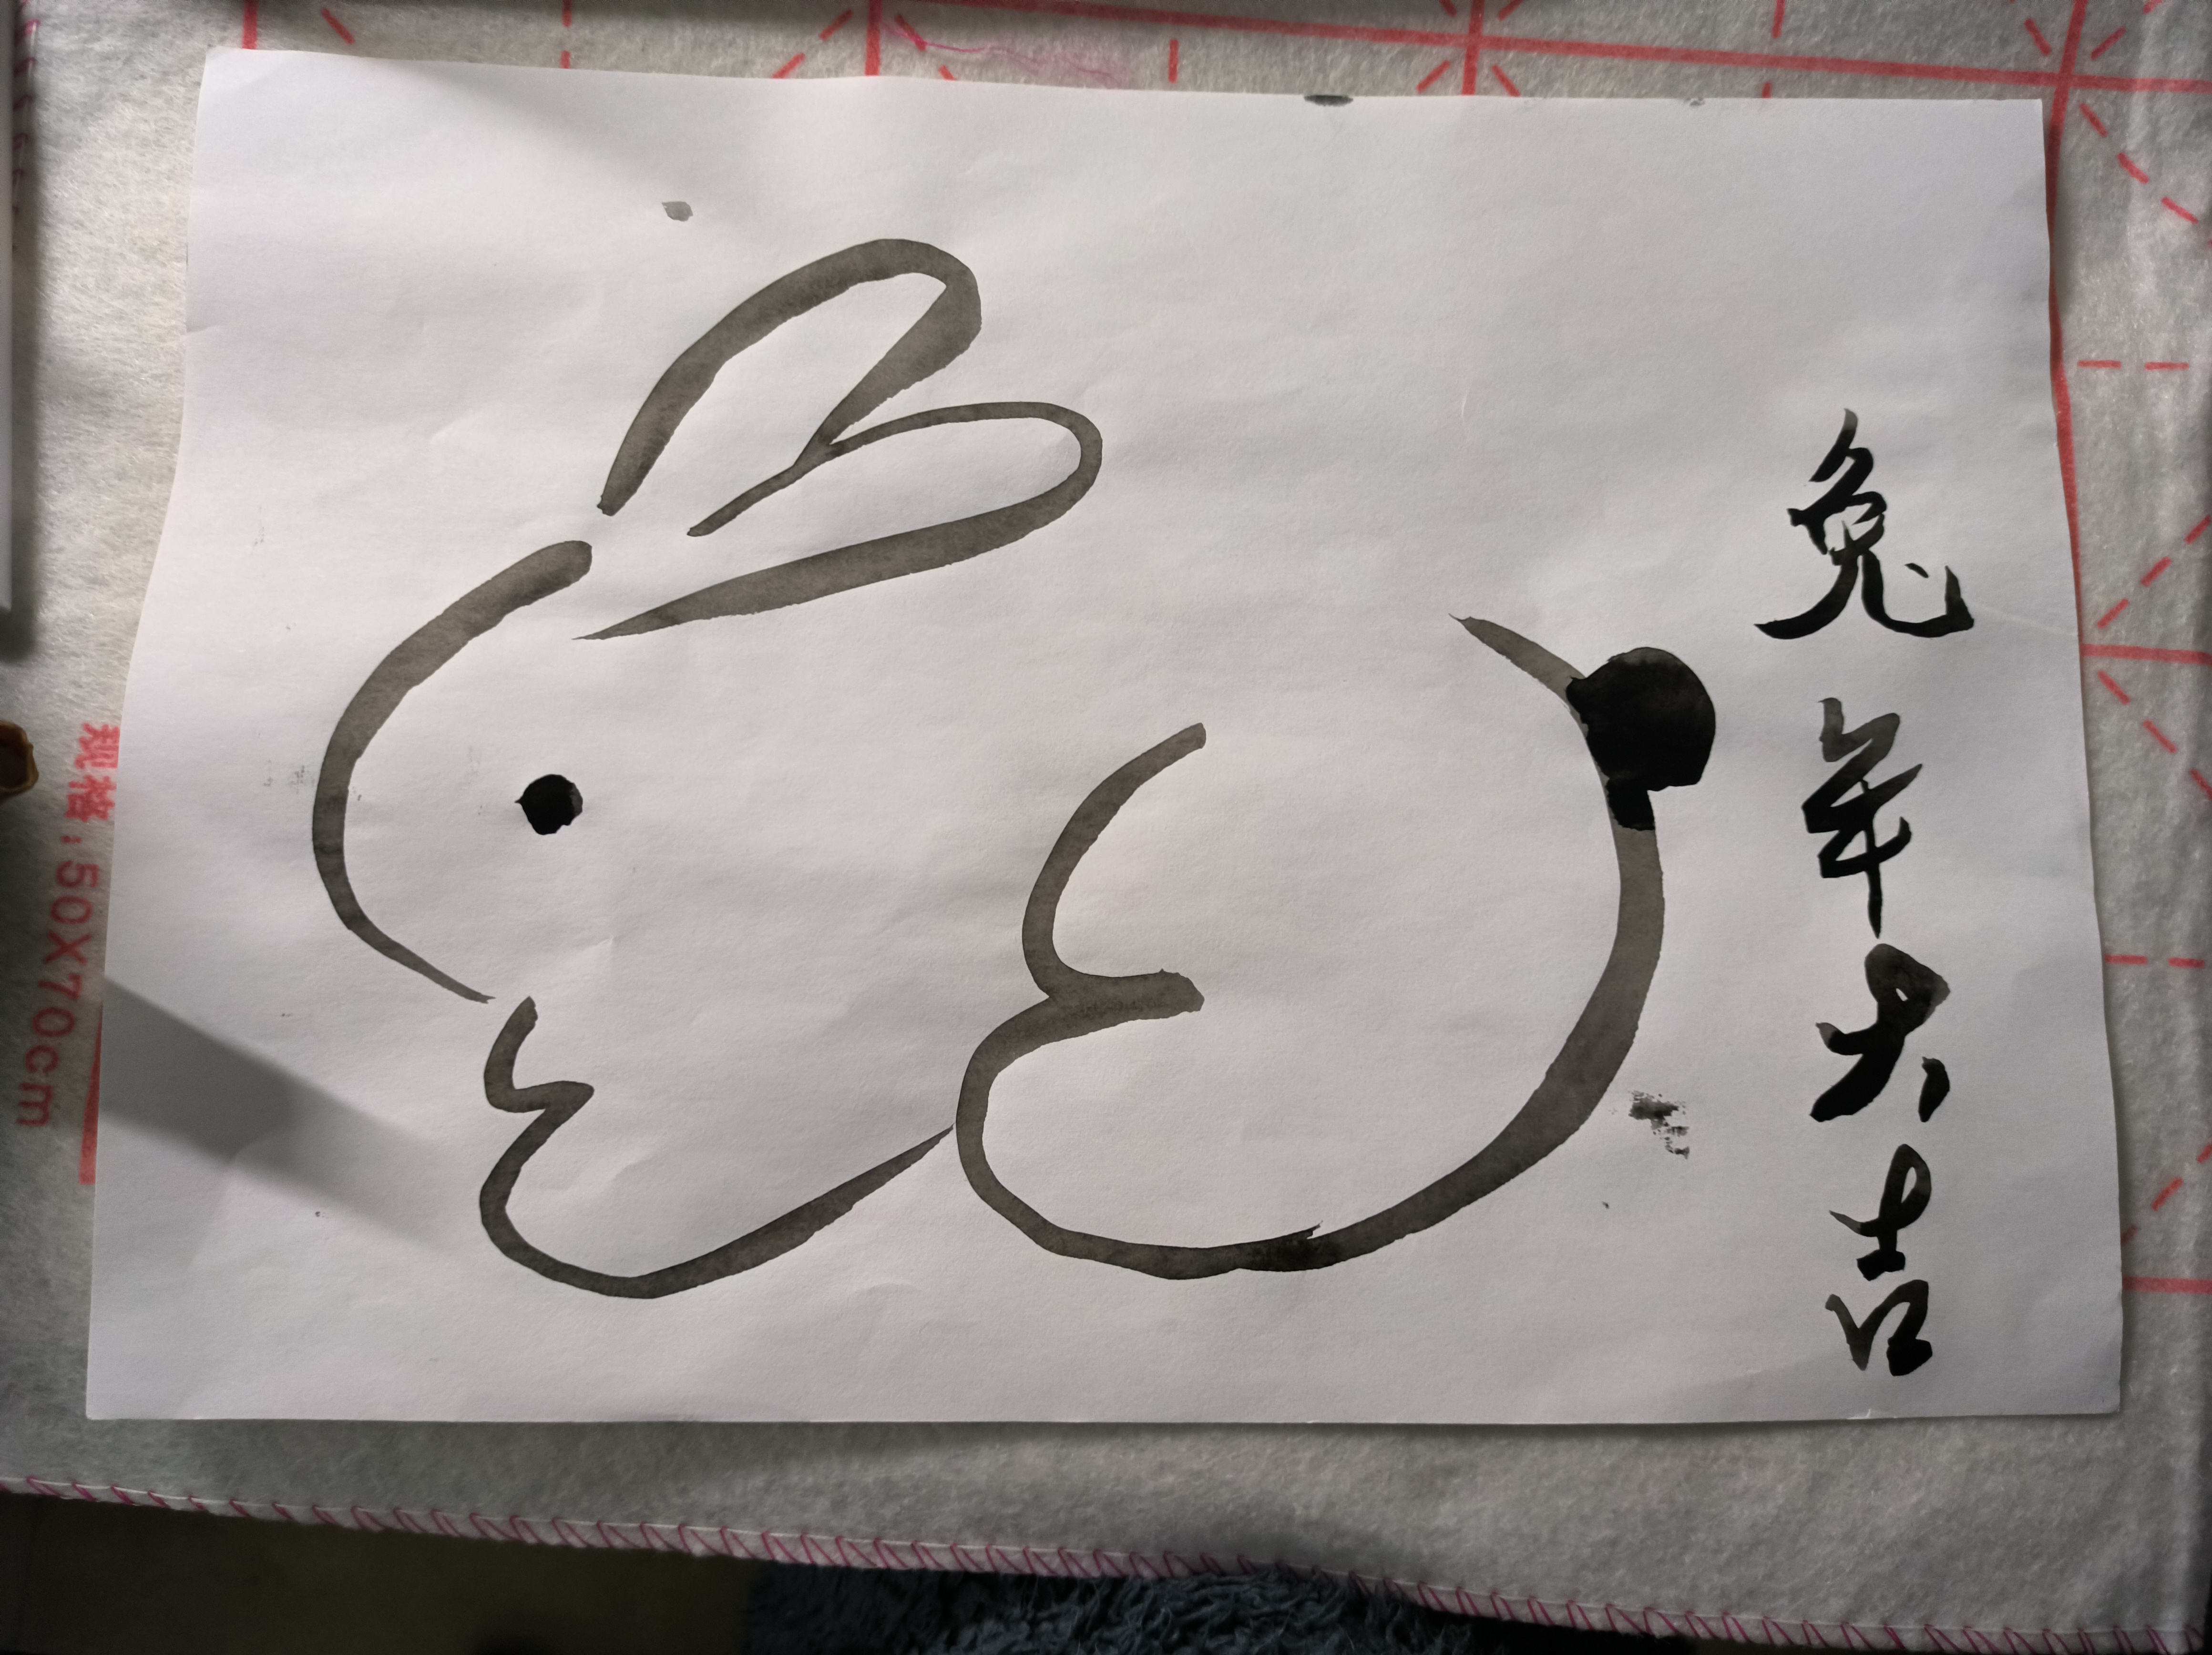 兔年大吉
规格:50X70cm